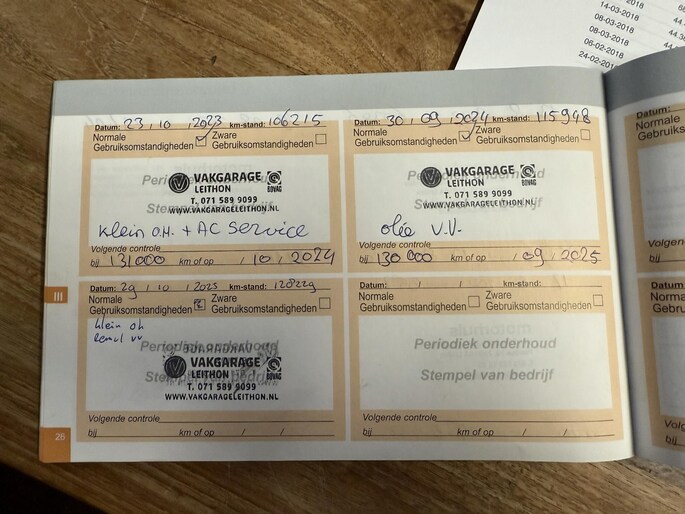 14-03-2018
08-03-2018
08-03-2018
06-02-2018
24-02-
44.
44.38
44.3
Datum: 23 / 10 / 2023 km-stand: 106215
Normale Gebruiksomstandigheden ☑ Zware Gebruiksomstandigheden ☐
VAKGARAGE
LEITHON
BOVAG
T. 071 589 9099
WWW.VAKGARAGELEITHON.NL
Stempel van bedrijf
klein O.H. + AC Service
Volgende controle
bij 131000 km of op / 10 / 2024
Datum: 30 / 09 / 2024 km-stand: 115948
Normale Gebruiksomstandigheden ☑ Zware Gebruiksomstandigheden ☐
VAKGARAGE
LEITHON
BOVAG
T. 071 589 9099
WWW.VAKGARAGELEITHON.NL
Stempel van bedrijf
olie V.V.
Volgende controle
bij 130 000 km of op / 09 / 2025
III
Datum: 29 / 10 / 2025 km-stand: 128229
Normale Gebruiksomstandigheden ☑ Zware Gebruiksomstandigheden ☐
klein oh
remvl vv
Periodiek onderhoud
VAKGARAGE
LEITHON
BOVAG
Stempel van bedrijf
T. 071 589 9099
WWW.VAKGARAGELEITHON.NL
Volgende controle
bij km of op / /
Datum: / / km-stand:
Normale Gebruiksomstandigheden ☐ Zware Gebruiksomstandigheden ☐
Periodiek onderhoud
Stempel van bedrijf
Volgende controle
bij km of op / /
26
Norma
Gebru
Volgen
bij
Datum
Norma
Gebru
Volge
bij